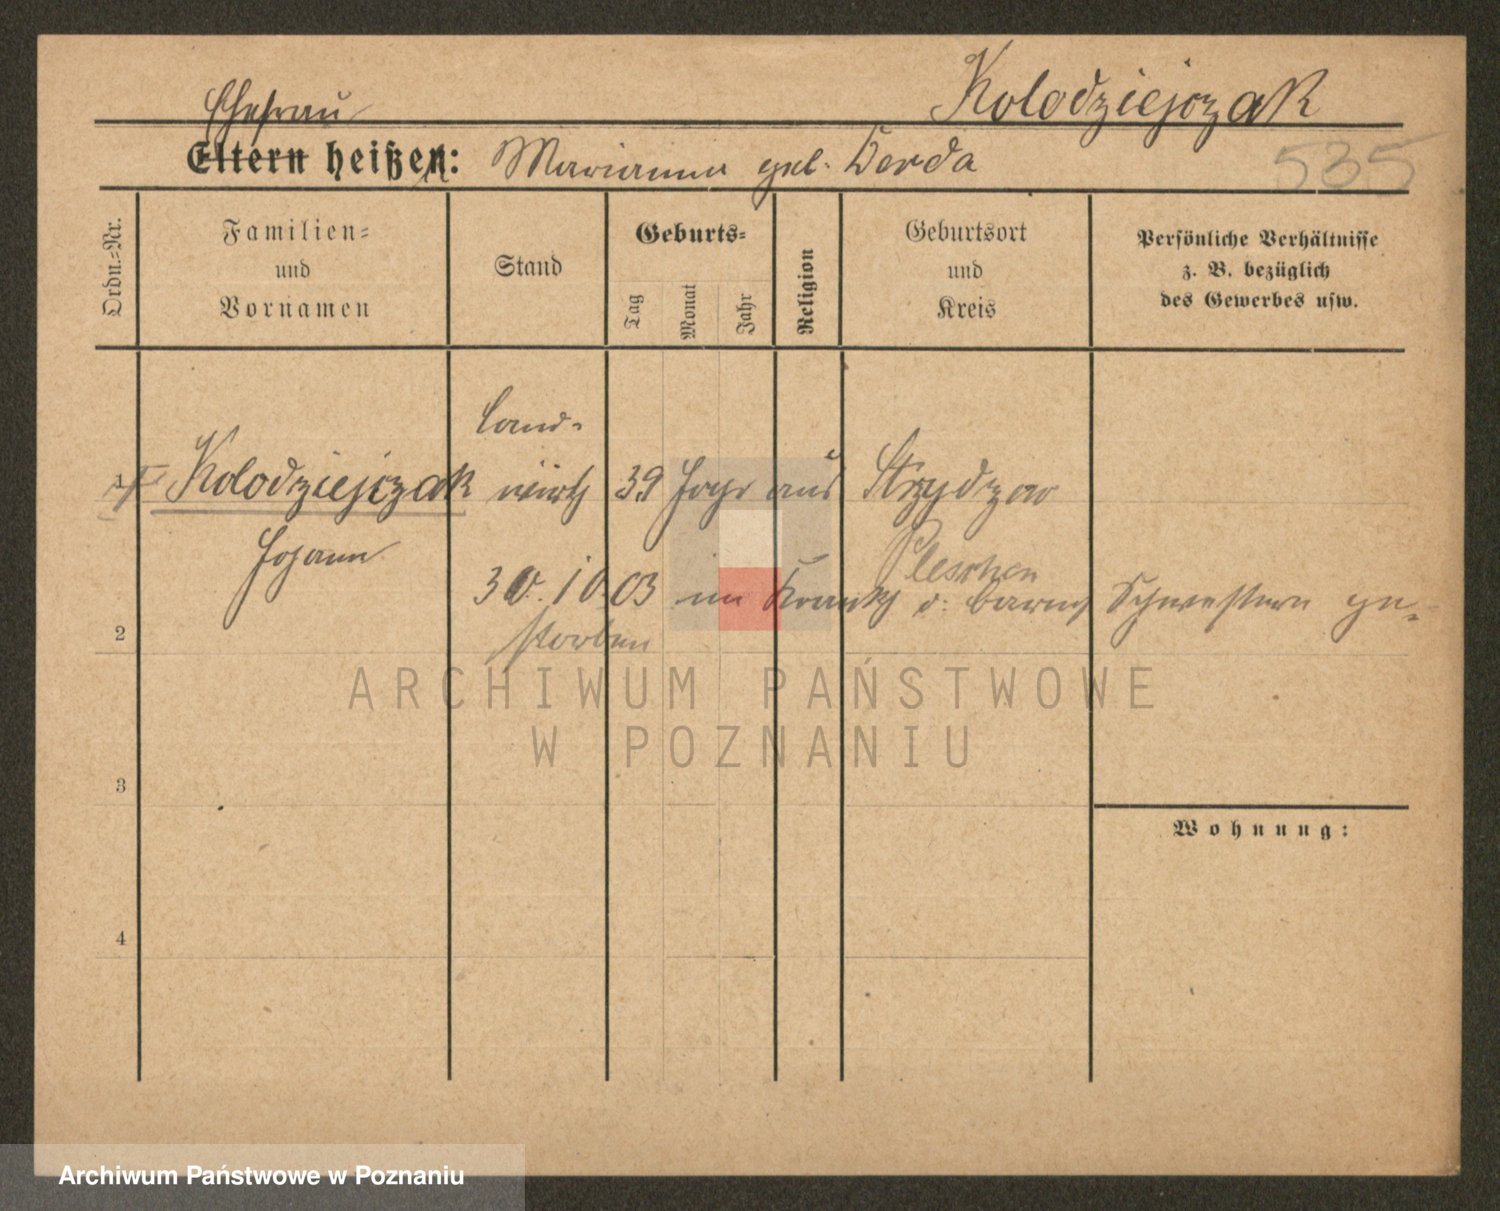 Kolodziejczak
Ehefrau
Eltern heißen: Marianna geb. Derda
535
Ordn.-Nr.
Familien-
und
Vornamen
Stand
Geburts-
Tag
Monat
Jahr
Religion
Geburtsort
und
Kreis
Persönliche Verhältnisse
z. B. bezüglich
des Gewerbes usw.
Land-
Kolodziejczak wirth 39 Jahr aus
Johann
Pleschen
30. 10 03 im Krankh d. barmh Schwestern ge-
storben
2
3
4
Wohnung:
ARCHIWUM PAŃSTWOWE
W POZNANIU
Archiwum Państwowe w Poznaniu